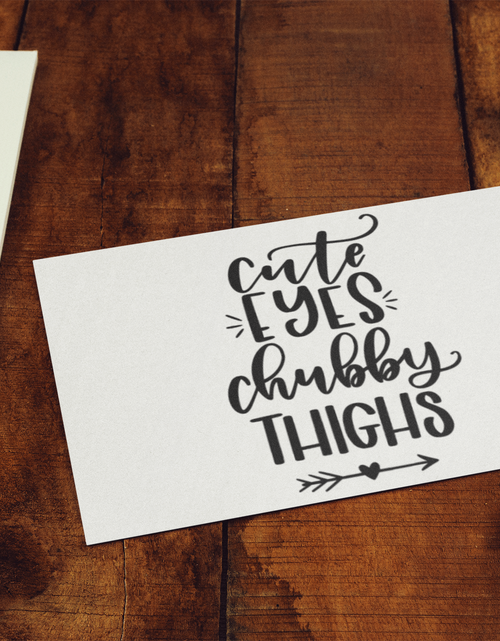 cute
EYES
chubby
THIGHS